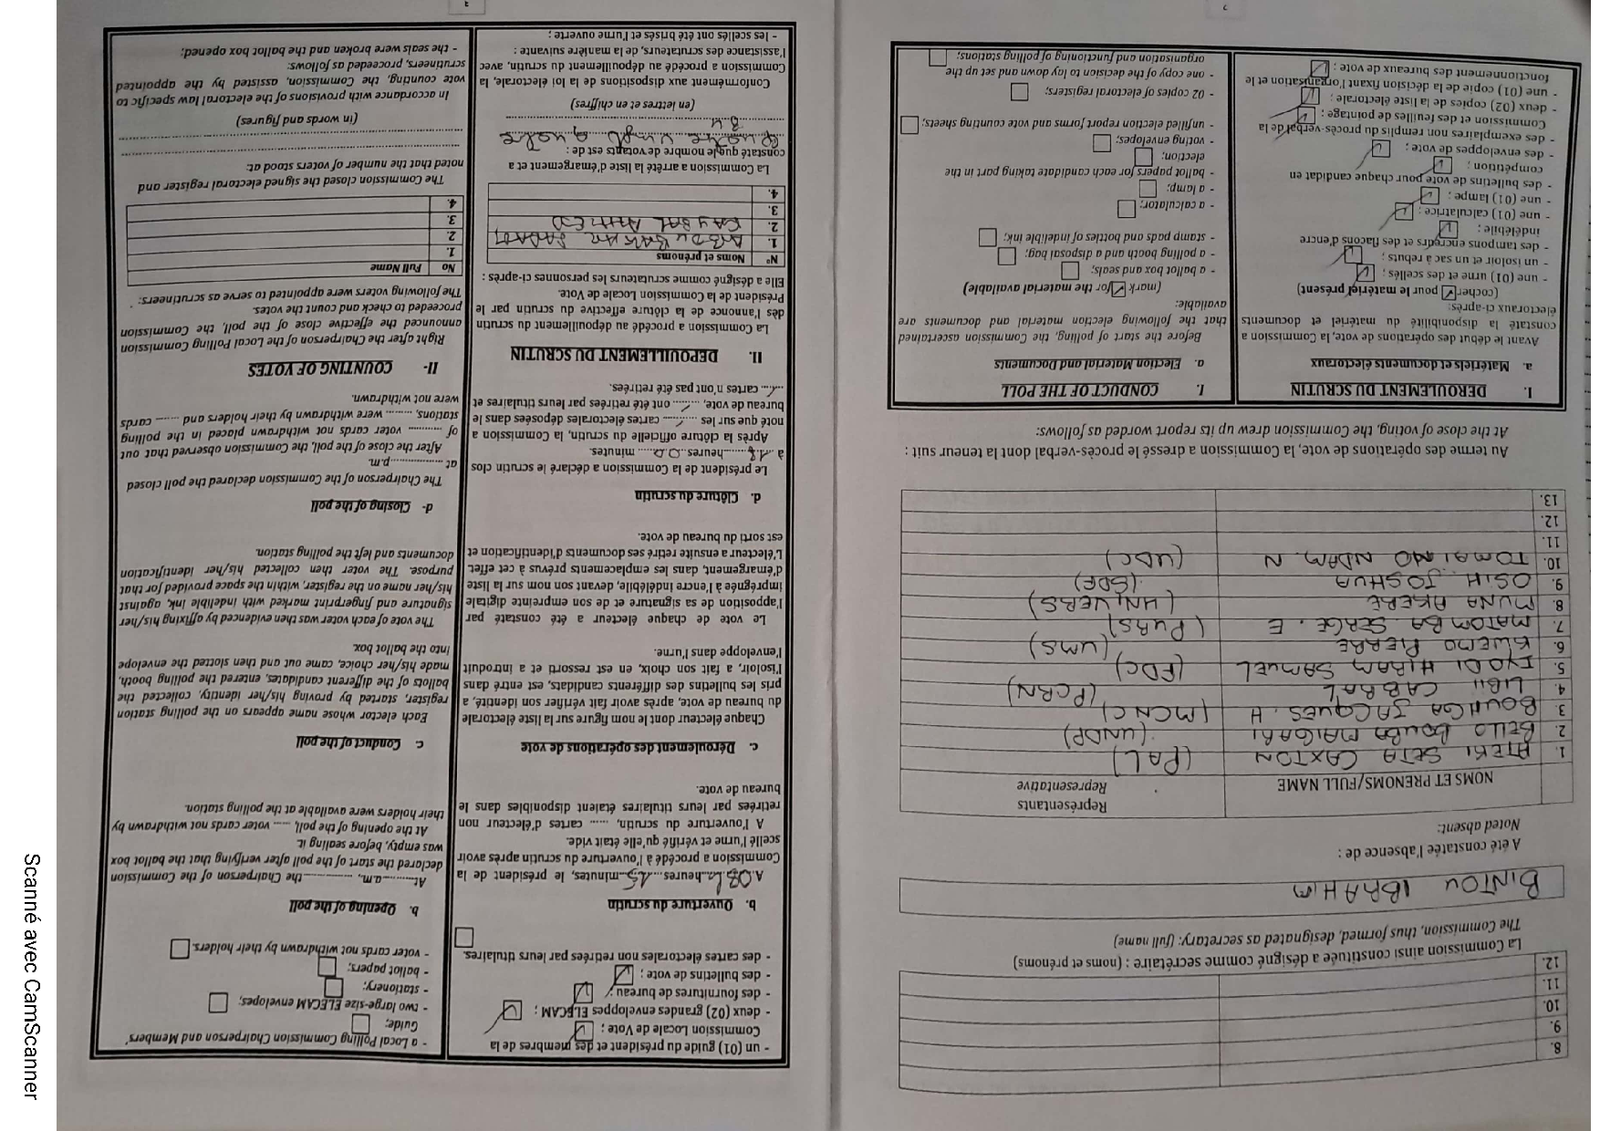 8.
9.
10.
11.
12.
La Commission ainsi constituée a désigné comme secrétaire : (noms et prénoms)
The Commission, thus formed, designated as secretary: (full name)
BINTOU IBRAHIM
A été constatée l'absence de :
Noted absent:
NOMS ET PRENOMS/FULL NAME
Représentants
Representative
1. ATEKI SETA CAXTON (PAL)
2. BELLO BOUBA MAIGARI (UNDP)
3. BOUHGA JACQUES. H (MCNC)
4. LIBII CABRAL (PCRN)
5. IYODI HIRAM SAMUEL (FDC)
6. KWEMO PIERRE (UMS)
7. MATOMBA SERGE. E (PURS)
8. MUNA AKERE (UNIVERS)
9. OSIH JOSHUA (SDF)
10. TOMAINO NDAM. N (UDC)
11.
12.
13.
Au terme des opérations de vote, la Commission a dressé le procès-verbal dont la teneur suit :
At the close of voting, the Commission drew up its report worded as follows:
I. DEROULEMENT DU SCRUTIN
a. Matériels et documents électoraux
Avant le début des opérations de vote, la Commission a
constaté la disponibilité du matériel et documents
électoraux ci-après:
(cocher ✓ pour le matériel présent)
- une (01) urne et des scellés ;
- un isoloir et un sac à rebuts ;
- des tampons encreurs et des flacons d'encre
indélébile ;
- une (01) calculatrice ;
- une (01) lampe ;
- des bulletins de vote pour chaque candidat en
compétition ;
- des enveloppes de vote ;
- des exemplaires non remplis du procès-verbal de la
Commission et des feuilles de pointage ;
- deux (02) copies de la liste électorale ;
- une (01) copie de la décision fixant l'organisation et le
fonctionnement des bureaux de vote ;
I. CONDUCT OF THE POLL
a. Election Material and Documents
Before the start of polling, the Commission ascertained
that the following election material and documents are
available:
(mark ✓ for the material available)
- a ballot box and seals;
- a polling booth and a disposal bag;
- stamp pads and bottles of indelible ink;
- a calculator;
- a lamp;
- ballot papers for each candidate taking part in the
election;
- voting envelopes;
- unfilled election report forms and vote counting sheets;
- 02 copies of electoral registers;
- one copy of the decision to lay down and set up the
organisation and functioning of polling stations;
- un (01) guide du président et des membres de la
Commission Locale de Vote ;
- deux (02) grandes enveloppes ELECAM ;
- des fournitures de bureau ;
- des bulletins de vote ;
- des cartes électorales non retirées par leurs titulaires.
b. Ouverture du scrutin
A 08 heures 15 minutes, le président de la
Commission a procédé à l'ouverture du scrutin après avoir
scellé l'urne et vérifié qu'elle était vide.
A l'ouverture du scrutin, ...... cartes d'électeur non
retirées par leurs titulaires étaient disponibles dans le
bureau de vote.
c. Déroulement des opérations de vote
Chaque électeur dont le nom figure sur la liste électorale
du bureau de vote, après avoir fait vérifier son identité, a
pris les bulletins des différents candidats, est entré dans
l'isoloir, a fait son choix, en est ressorti et a introduit
l'enveloppe dans l'urne.
Le vote de chaque électeur a été constaté par
l'apposition de sa signature et de son empreinte digitale
imprégnée à l'encre indélébile, devant son nom sur la liste
d'émargement, dans les emplacements prévus à cet effet.
L'électeur a ensuite retiré ses documents d'identification et
est sorti du bureau de vote.
d. Clôture du scrutin
Le président de la Commission a déclaré le scrutin clos
à 18 heures 00 minutes.
Après la clôture officielle du scrutin, la Commission a
noté que sur les ../.. cartes électorales déposées dans le
bureau de vote, ../.. ont été retirées par leurs titulaires et
../.. cartes n'ont pas été retirées.
II. DEPOUILLEMENT DU SCRUTIN
La Commission a procédé au dépouillement du scrutin
dès l'annonce de la clôture effective du scrutin par le
Président de la Commission Locale de Vote.
Elle a désigné comme scrutateurs les personnes ci-après :
N° Noms et prénoms
1. ABDU BAKAR
2. FAYSAL AHMED
3.
4.
La Commission a arrêté la liste d'émargement et a
constaté que le nombre de votants est de :
quatre vingt quatre
84
(en lettres et en chiffres)
Conformément aux dispositions de la loi électorale, la
Commission a procédé au dépouillement du scrutin, avec
l'assistance des scrutateurs, de la manière suivante :
- les scellés ont été brisés et l'urne ouverte ;
- a Local Polling Commission Chairperson and Members'
Guide;
- two large-size ELECAM envelopes;
- stationery;
- ballot papers;
- voter cards not withdrawn by their holders.
b. Opening of the poll
At..........a.m, ............... the Chairperson of the Commission
declared the start of the poll after verifying that the ballot box
was empty, before sealing it.
At the opening of the poll, ...... voter cards not withdrawn by
their holders were available at the polling station.
c. Conduct of the poll
Each elector whose name appears on the polling station
register, started by proving his/her identity, collected the
ballots of the different candidates, entered the polling booth,
made his/her choice, came out and then slotted the envelope
Into the ballot box.
The vote of each voter was then evidenced by affixing his/her
signature and fingerprint marked with indelible ink, against
his/her name on the register, within the space provided for that
purpose. The voter then collected his/her identification
documents and left the polling station.
d- Closing of the poll
The Chairperson of the Commission declared the poll closed
at ..................p.m.
After the close of the poll, the Commission observed that out
of ........... voter cards not withdrawn placed in the polling
stations, ........ were withdrawn by their holders and ....... cards
were not withdrawn.
II- COUNTING OF VOTES
Right after the Chairperson of the Local Polling Commission
announced the effective close of the poll, the Commission
proceeded to check and count the votes.
The following voters were appointed to serve as scrutineers:
No Full Name
1.
2.
3.
4.
The Commission closed the signed electoral register and
noted that the number of voters stood at:
(in words and figures)
In accordance with provisions of the electoral law specific to
vote counting, the Commission, assisted by the appointed
scrutineers, proceeded as follows:
- the seals were broken and the ballot box opened;
Scanné avec CamScanner